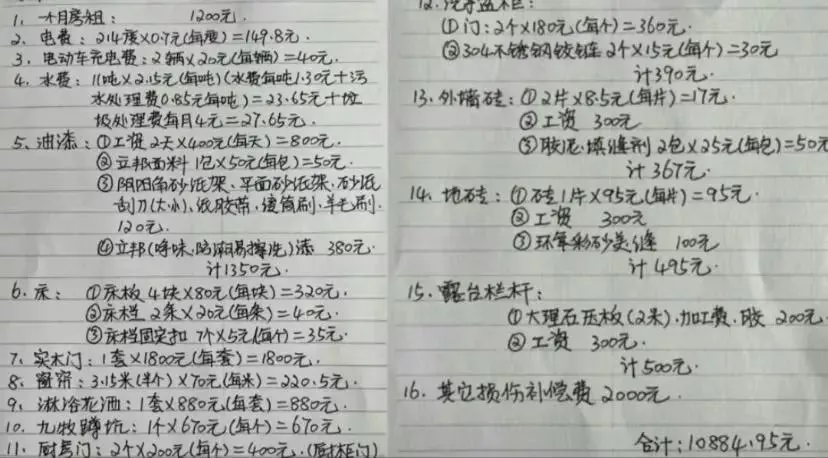 1、一个月房租： 1200元.
2、电费：214度×0.7元(每度)=149.8元.
3、电动车充电费：2辆×20元(每辆)=40元.
4、水费：11吨×2.15元(每吨)(水费每吨1.30元+污
水处理费0.85元每吨)=23.65元+垃
圾处理费每月4元=27.65元.
5、油漆：①工资2天×400元(每天)=800元.
②立邦面料1包×50元(每包)=50元.
③阴阳角砂纸架、平面砂纸架、砂纸
刮刀(大小)、纸胶带、滚筒刷、羊毛刷.
120元.
④立邦(净味,防潮易擦洗)漆 380元.
计1350元.
6、床：①床板4块×80元(每块)=320元.
②床档2条×20元(每条)=40元.
③床档固定扣7个×5元(每个)=35元.
7、实木门：1套×1800元(每套)=1800元.
8、窗帘：3.15米(半个)×70元(每米)=220.5元.
9、淋浴花洒：1套×880元(每套)=880元.
10、九牧蹲坑：1个×670元(每个)=670元.
11、厨房门：2个×200元(每个)=400元.(厨柜门)
12.洗手盆柜：
①门：2个×180元(每个)=360元.
②304不锈钢铰链2个×15元(每个)=30元
计390元.
13.外墙砖：①2片×8.5元(每片)=17元.
②工资 300元
③胶泥.填缝剂2包×25元(每包)=50元
计367元.
14.地砖：①砖1片×95元(每片)=95元.
②工资 300元
③环氧彩砂美缝 100元
计495元.
15.露台栏杆：
①大理石压板(2米).加工费.胶 200元.
②工资 300元.
计500元.
16.其它损伤补偿费2000元.
合计：10884.95元.